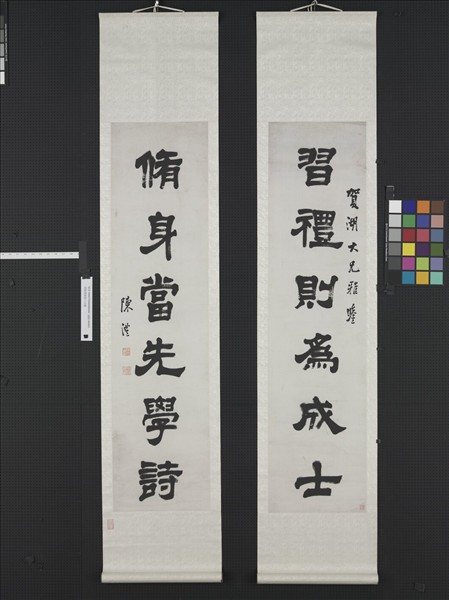 賀湖大兄雅鑒
習禮則為成士
脩身當先學詩
陳澧